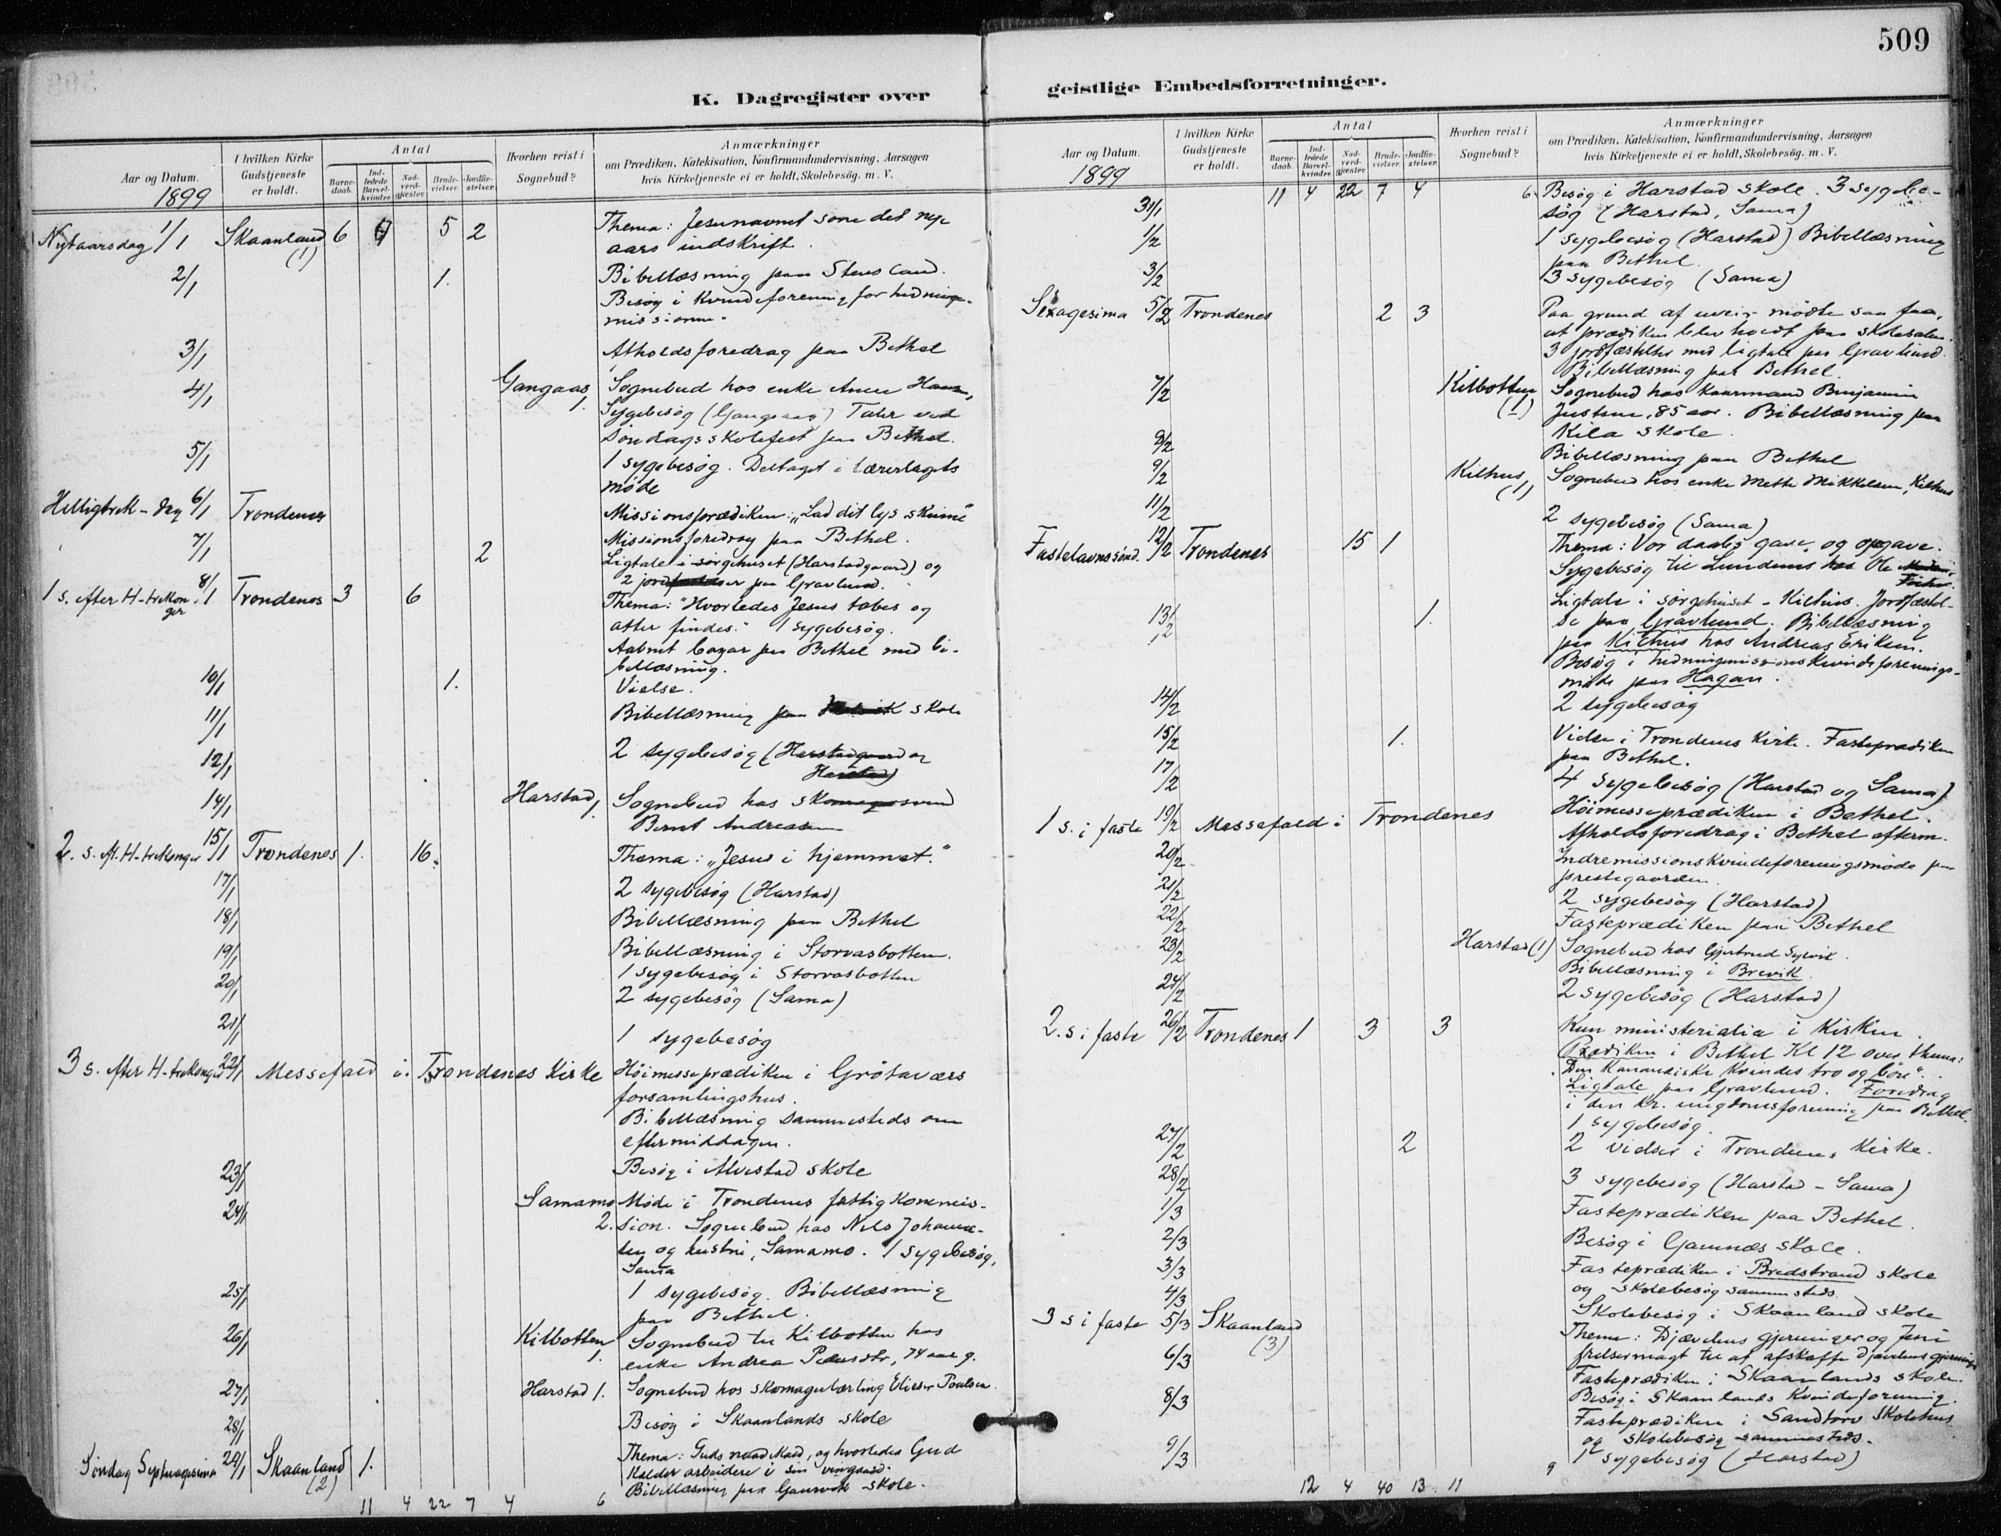 509
K. Dagregister over
geistlige Embedsforretninger.
Aar og Datum.
1899
I hvilken Kirke
Gudstjeneste
er holdt.
Antal
Barne-
daab.
Ind-
ledede
Barsel-
kvinder.
Nad-
verd-
gjæster.
Brude-
vielser.
Jordfæ-
stelser.
Hvorhen reist i
Sognebud?
Anmærkninger
om Prædiken, Katekisation, Konfirmandundervisning, Aarsagen
hvis Kirketjeneste ei er holdt, Skolebesøg. m. V.
Nytaarsdag 1/1 Skaanland 6 5 2 Thema: Jesunavnet som det nye
(1) aars indskrift.
2/1 1. Bibellæsning paa Stensland.
Besøg i Kvindeforening for hedninge-
missionen.
3/1 Afholdsforedrag paa Bethel
4/1 Gangaas 1. Sognebud hos enke Anne Hans,
Sygebesøg (Gangsaas) Taler ved
Søndagsskolefest paa Bethel.
5/1 1 sygebesøg. Deltaget i lærerlagets
møde
Helligtrek-dag 6/1 Trondenes Missionsprædiken: „Lad dit lys skinne"
Missionsforedrag paa Bethel.
7/1 2 Ligtale i sørgehuset (Harstadgaard) og
2 jordfæstelser paa Gravlund.
1 s. efter H-trekon- 8/1 Trondenes 3 6 Thema: "Hvorledes Jesus tabes og
ger atter findes." 1 sygebesøg.
Aabnet bazar paa Bethel med bi-
bellæsning.
10/1 1. Vielse.
11/1 Bibellæsning paa skole
12/1 2 sygebesøg (Harstadgaard og
Harstad)
14/1 Harstad 1. Sognebud hos skomagersvend
Bernt Andreasen
2. s. eft. H-trekonger 15/1 Trondenes 1. 16. Thema: „Jesus i hjemmet."
17/1 2 sygebesøg (Harstad)
18/1 Bibellæsning paa Bethel
19/1 Bibellæsning i Storvasbotten.
1 sygebesøg i Storvasbotten
20/1 2 sygebesøg (Sama)
21/1 1 sygebesøg
3 s. efter H-trekonger 22/1 Messefald i Trondenes Kirke Høimesseprædiken i Grøtaværs
forsamlingshus.
Bibellæsning sammesteds om
eftermiddagen.
23/1 Besøg i Alvestad skole
24/1 Samamo 2. Møde i Trondenes fattigkommis-
sion. Sognebud hos Nils Johanne-
sen og hustru, Samamo. 1 sygebesøg,
Sama
25/1 1 sygebesøg. Bibellæsning
paa Bethel.
26/1 Kilbotten 1. Sognebud til Kilbotten hos
enke Andrea Pedersdtr, 74 aar g.
27/1 Harstad 1. Sognebud hos skomagerlærling Elieser Poulsen
28/1 Besøg i Skaanlands skole
Søndag Septuagesima 29/1 Skaanland 1. Thema: Guds naademaad, og hvorledes Gud
(2) kalder arbeidere i sin vingaard.
Bibellæsning paa skole.
11 4 22 7 4 6
Aar og Datum.
1899
I hvilken Kirke
Gudstjeneste
er holdt.
Antal
Barne-
daab.
Ind-
ledede
Barsel-
kvinder.
Nad-
verd-
gjæster.
Brude-
vielser.
Jordfæ-
stelser.
Hvorhen reist i
Sognebud?
Anmærkninger
om Prædiken, Katekisation, Konfirmandundervisning, Aarsagen
hvis Kirketjeneste ei er holdt, Skolebesøg. m. V.
11 4 22 7 4 6
31/1 Besøg i Harstad skole. 3 sygebe-
søg (Harstad, Sama)
1/2 1 sygebesøg (Harstad) Bibellæsning
paa Bethel.
3/2 3 sygebesøg (Sama)
Sexagesima 5/2 Trondenes 2 3 Paa grund af uveir mødte saa faa,
at prædiken blev holdt paa skolesalen.
3 jordfæstelser med ligtale paa Gravlund.
Bibellæsning paa Bethel.
7/2 Kilbotten Sognebud hos kaarmand Benjamin
(1) Justsen, 85 aar. Bibellæsning paa
Kila skole.
9/2 Bibellæsning paa Bethel
9/2 Kilhus Sognebud hos enke Mette Mikkelsen, Kilhus
(1)
11/2 2 sygebesøg (Sama)
Fastelavnssønd. 12/2 Trondenes 15 1 Thema: Vor daabs gave og opgave.
Sygebesøg til Lundenes hos Ole
13/2 1. Ligtale i sørgehuset - Kilhus. Jordfæstel-
se paa Gravlund. Bibellæsning
paa Kilhus hos Andreas Eriksen.
Besøg i hedningemissionskvindeforenings-
møde paa Hagan.
14/2 2 sygebesøg
15/2 1. Vielse i Trondenes Kirke. Fasteprædiken
paa Bethel.
17/2 4 sygebesøg (Harstad og Sama)
1 s. i faste 19/2 Messefald i Trondenes Høimesseprædiken i Bethel.
Afholdsforedrag i Bethel efterm.
20/2 Indremissionskvindeforeningsmøde paa
prestegaarden.
21/2 2 sygebesøg (Harstad)
22/2 Fasteprædiken paa Bethel
23/2 Harstad (1) Sognebud hos Gjertrud
Bibellæsning i Brevik.
24/2 2 sygebesøg (Harstad)
2. s. i faste 26/2 Trondenes 1 3 3 Kun ministerialia i Kirken.
Prædiken i Bethel Kl 12 over thema:
„Den Kananæiske kvindes tro og bøn".
Ligtale paa Gravlund. Foredrag
i den Kr. ungdomsforening paa Bethel.
1 sygebesøg.
27/2 2 2 vielser i Trondenes Kirke.
28/2 3 sygebesøg (Harstad - Sama)
1/3 Fasteprædiken paa Bethel.
2/3 Besøg i Gamnæs skole.
3/3 Fasteprædiken i Bredstrand skole
og skolebesøg sammesteds.
4/3 Skolebesøg i Skaanland skole
3 s i faste 5/3 Skaanland Thema: Djævelens gjerninger og Jesu
(3) frelsermagt til at afskaffe djævelens gjerninger
6/3 Fasteprædiken i Skaanlands skole.
Besøg i Skaanlands Kvindeforening.
8/3 Fasteprædiken i Sandtorv skolehus
og skolebesøg sammesteds.
9/3 1 sygebesøg (Harstad)
12 4 40 13 11 9